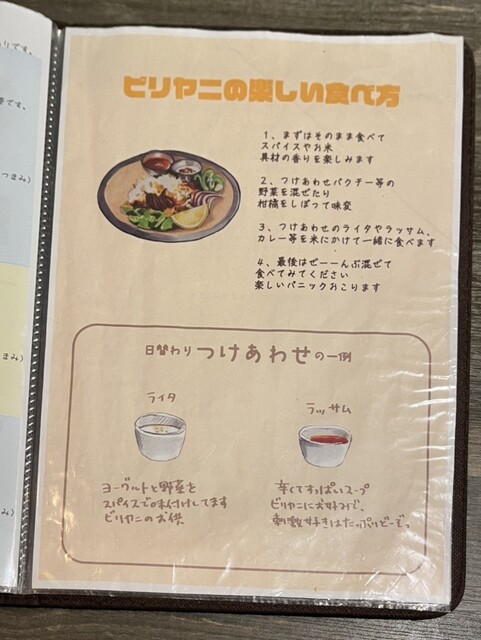 ビリヤニの楽しい食べ方
1、まずはそのまま食べて
スパイスやお米
具材の香りを楽しみます
2、つけあわせパクチー等の
野菜を混ぜたり
柑橘をしぼって味変
3、つけあわせのライタやラッサム、
カレー等を米にかけて一緒に食べます
4、最後はぜーーんぶ混ぜて
食べてみてください
楽しいパニックおこります
日替わりつけあわせの一例
ライタ
ヨーグルトと野菜を
スパイスで味付けしてます
ビリヤニのお供
ラッサム
辛くてすっぱいスープ
ビリヤニにお好みで、
刺激好きはたっぷりどーでっ
つまみ)